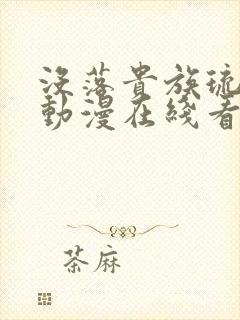 沒落貴族琉
動漫在綫看
茶麻